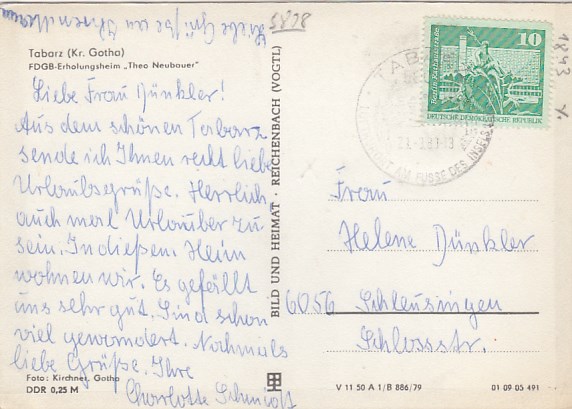 Liebe Grüße an Ihren
5878
Tabarz (Kr. Gotha)
FDGB-Erholungsheim „Theo Neubauer"
Liebe Frau Dünkler!
Aus dem schönen Tabarz
sende ich Ihnen recht liebe
Urlaubsgrüße. Herrlich
auch mal Urlauber zu
sein. In diesem Heim
wohnen wir. Es gefällt
uns sehr gut. Sind schon
viel gewandert. Nochmals
liebe Grüße. Ihre
Charlotte Schmidt
Foto: Kirchner, Gotha
DDR 0,25 M
BILD UND HEIMAT · REICHENBACH (VOGTL)
TABARZ
AM FUSSE DES INSELSBERGES
10
Berlin, Rathausstraße
DEUTSCHE DEMOKRATISCHE REPUBLIK
1843
Frau
Helene Dünkler
6056 Schleusingen
Schlossstr.
V 11 50 A 1/B 886/79
01 09 05 491